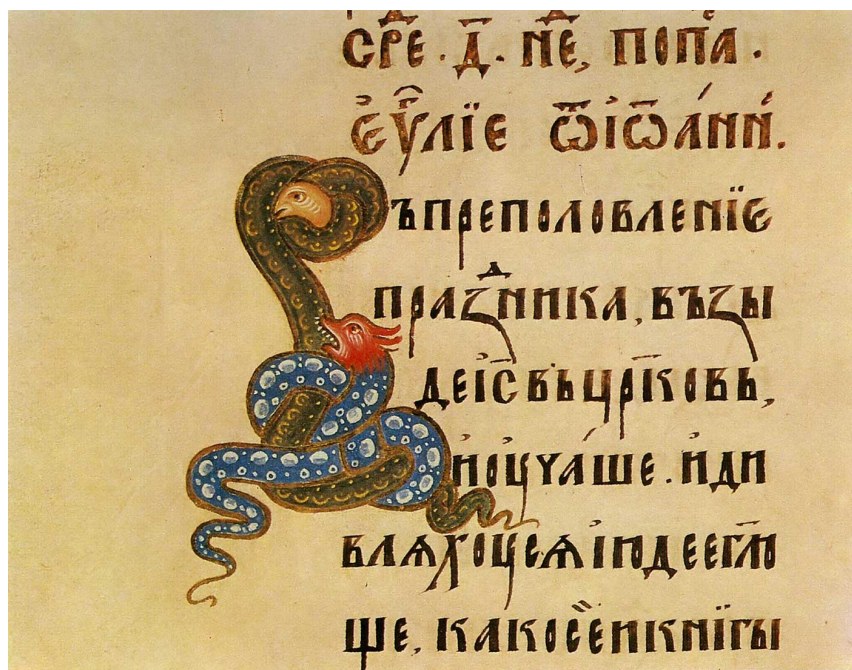 СРЕ· Д҃· НЕ, ПОПА·
ЄУ҃ЛЇЕ Ѿ ІѠ́АНН.
ъпреполовленїе
празⷣника, въꙁы
деіс҃ въцр҃ковь,
иоучаше. иди
влѧхоусѧ іюдеегл҃ю
ще, како сеи книгы